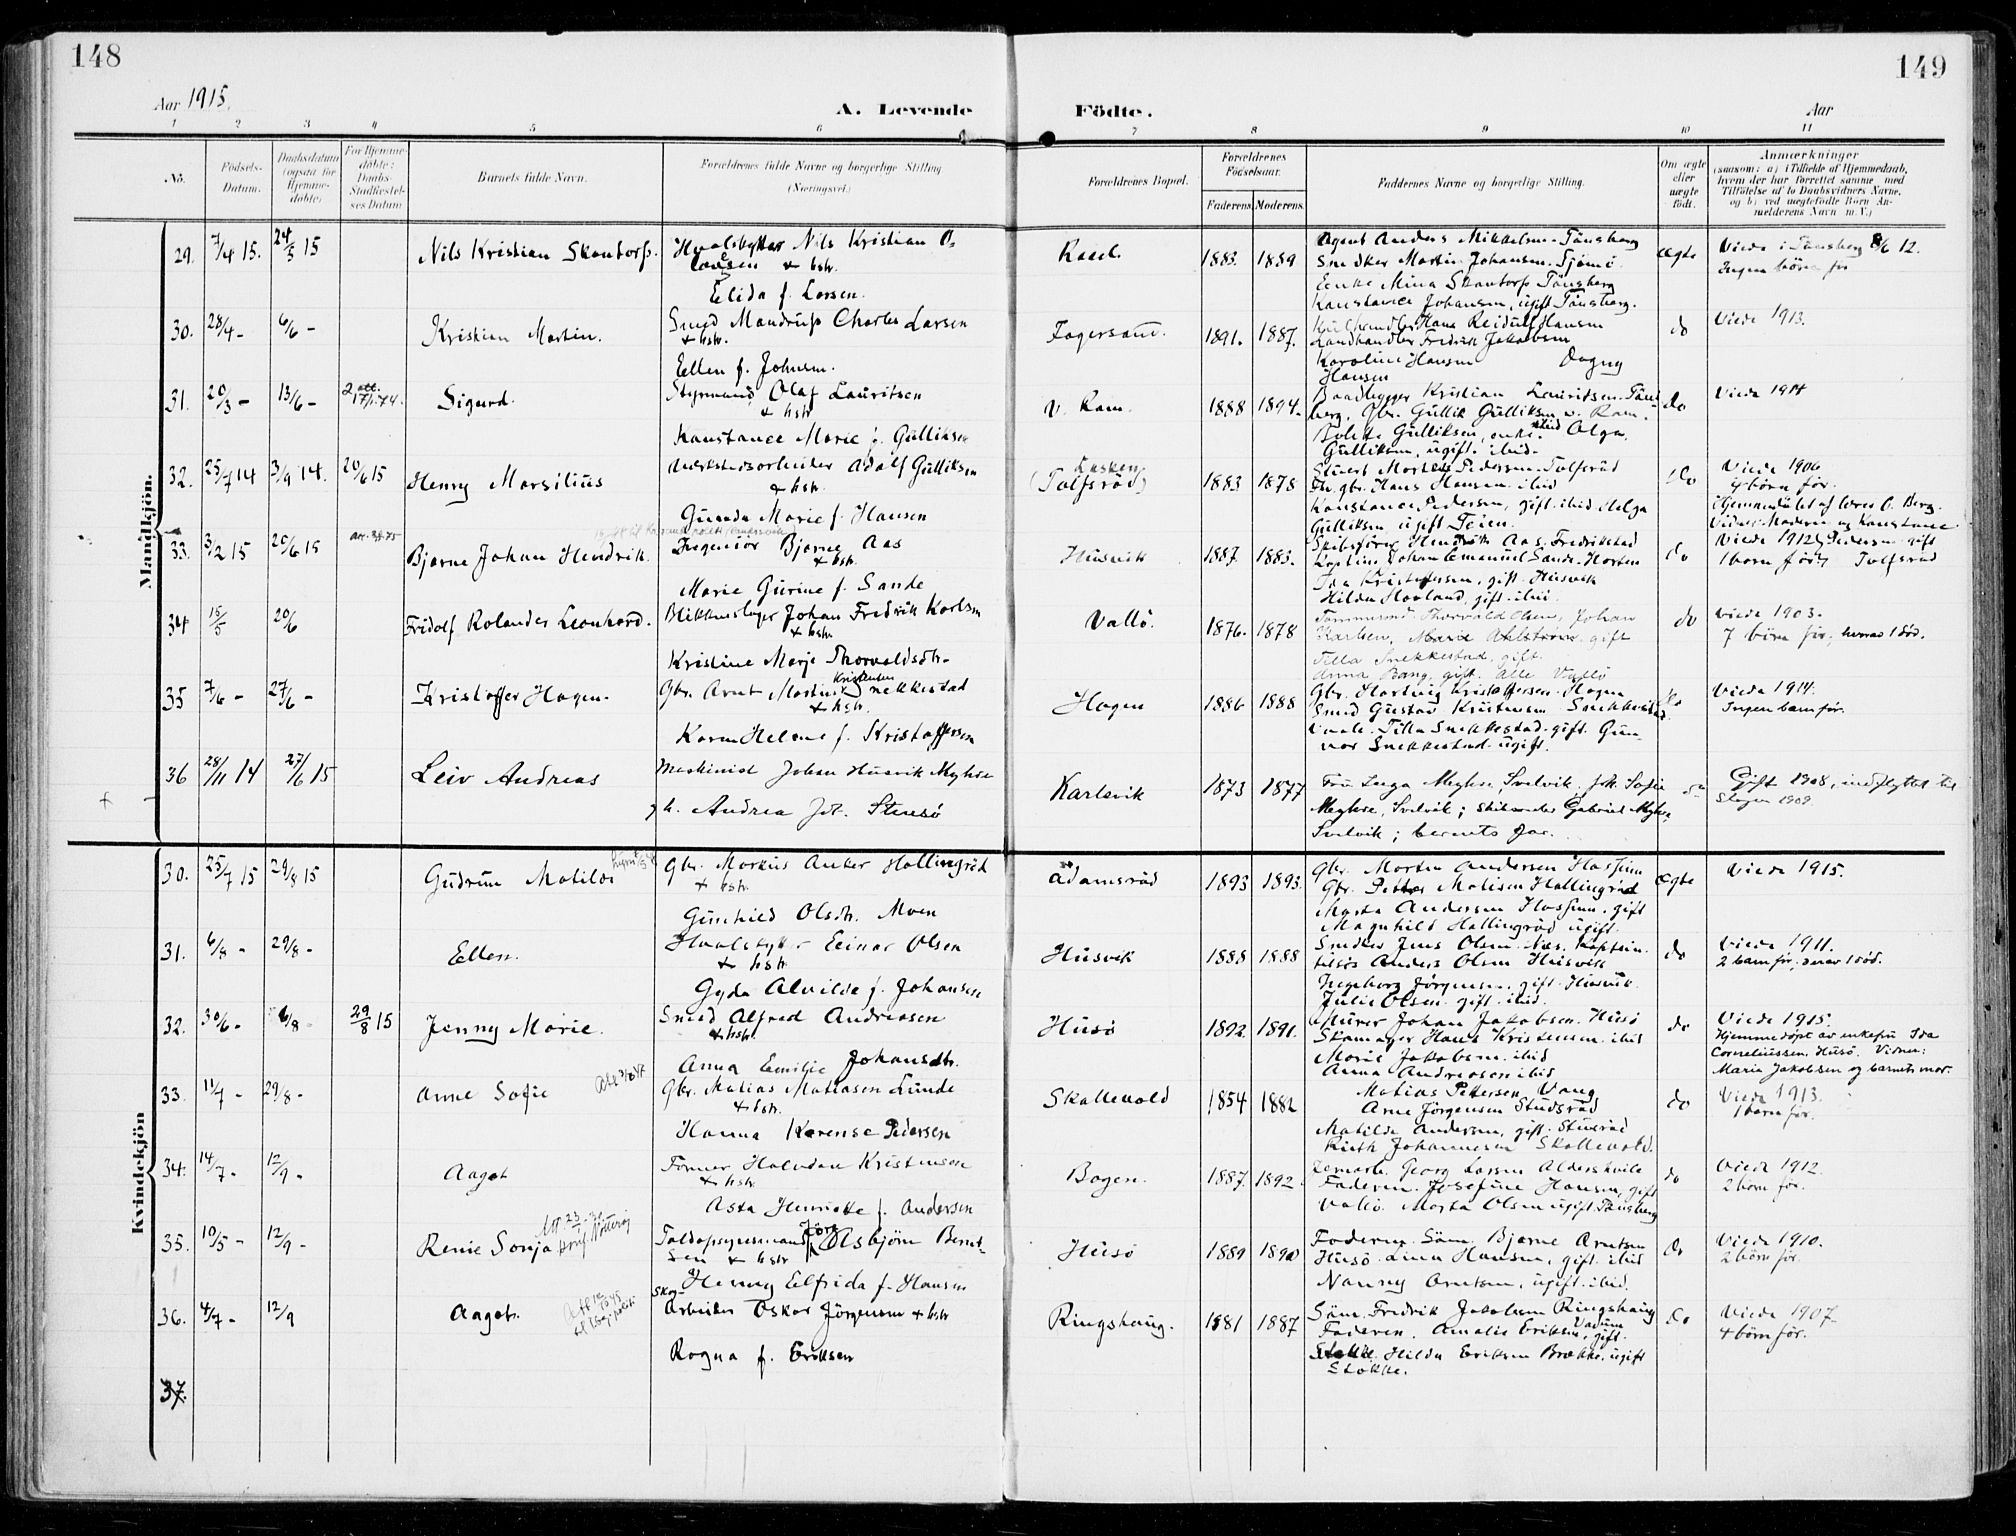 148
149
Aar 1915.
A. Levende
Födte.
Aar
1 2 3 4 5 6 7 8 9 10 11
No.
Födsels-Datum.
Daabsdatum (ogsaa for Hjemme-döbte)
For Hjemme-döbte: Daabs-Stadfæstel-ses Datum
Barnets fulde Navn.
Forældrenes fulde Navne og borgerlige Stilling (Næringsvei.)
Forældrenes Bopæl.
Forældrenes Födselsaar.
Faderens Moderens
Faddernes Navne og borgerlige Stilling.
Om ægte eller uægte födt.
Anmærkninger
(saasom: a) i Tilfælde af Hjemmedaab,
hvem der har forrettet samme med
Tilföielse af to Daabsvidners Navne,
og b) ved uægtefödte Börn An-
melderens Navn m. V.)
Mandkjön.
29. 7/4 15. 24/5 15 Nils Kristian Skontorp. Hvalskytter Nils Kristian O-
lavsen + hstr.
Elida f. Larsen.
Rael. 1883. 1889
Agent Anders Mikkelsen Tönsberg
Snedker Martin Johansen Tjömö
Enke Mina Skontorp Tönsberg
Konstance Johansen, ugift Tönsberg.
ægte
Viede i Tönsberg 8/6 12.
Ingen börn för
30. 28/4 - 6/6 - Kristian Martin. Smed Mandrup Charles Larsen
+ hstr.
Ellen f. Johnsen.
Fagersand. 1891. 1887.
Hans Reidulf Hansen
Landhandler Fredrik Jakobsen
Karoline Hansen Dagny
Hansen
do
Viede 1913.
31. 20/3 - 13/6 - Sigurd. Styrmand Olaf Lauritsen
+ hstr
Konstance Marie f. Gulliksen
v. Ram. 1888 1894.
Baadbygger Kristian Lauritsen Töns-
berg. Gbr. Gullik Gulliksen v. Ram.
Bolette Gulliksen, enke ibid Olga
Gulliksen, ugift. ibid.
do
Viede 1914
32. 25/7 14 3/9 14. 20/6 15 Henny Marsilius Værkstedsarbeider Adolf Gulliksen
+ hstr.
Gunda Marie f. Hansen
(Tolfsröd) 1883 1878
Stuert Morten Pedersen Tolfsröd
Gbr. Hans Hansen ibid
Konstance Pedersen, gift. ibid Helga
Gulliksen ugift Teien.
do
Viede 1906
4 börn för.
Hjemmedöbt af lærer O. Berg.
Vidner: Moderen og Konstance
Pedersen gift
Tolfsröd
33. 3/2 15 20/6 15 Bjarne Johan Hendrik. Ingeniör Bjarne Aas
+ hstr.
Marie Gurine f. Sande
Husvik 1887 1883.
Skibsförer Hendrik Aas. Fredrikstad
Kaptein Johan Emanuel Sande. Horten
Ida Kristoffersen, gift. Husvik
Hilda Hovland, gift. ibid.
do
Viede 1912
1 barn för
34 15/5 20/6 Fridolf Rolander Leonhard. Blikkenslager Johan Fredrik Karlsen
+ hstr.
Kristine Marje Thorvaldsdtr.
Vallö. 1876. 1878
Tömmermd Thorvald Olsen, Johan
Karlsen, Maria Ahlström. gift
Tilla Snekkestad, gift.
Anna Bang, gift. alle Vallö
do
Viede 1903.
7 börn för, hvorav 1 död.
35 7/6 - 27/6 - Kristoffer Hagen. Gbr. Arnt Martin Kristensen Snekkestad
+ hstr.
Karen Helene f. Kristoffersen
Hagen 1886 1888
Gbr. Hartvig Kristoffersen Hagen
Smed Gustav Kristensen Snekkestad
Tilla Snekkestad. gift. Gun-
vor Snekkestad. ugift.
do
Viede 1914.
Ingen barn för.
36 28/11 14 27/6 15 Leiv Andreas Maskinist Johan Husvik Myhre
g. h. Andrea Stensö
Karlsvik 1873 1877
Fru Inga Myhre, Svelvik, Sofie
Myhre, Svelvik; Gabriel Myhre,
Svelvik; barnets far.
Gift 1908, indflyttet til
Slagen 1909.
Kvindekjön
30. 25/7 15 29/8 15 Gudrun Matilde Gbr. Markus Anker Hallingröd
+ hstr.
Gunhild Olsdtr. Moen
Adamsröd 1893 1893.
Gbr. Morten Andersen Hassum
Gbr. Petter Matisen Hallingröd
Marta Andersen Hassum. gift
Magnhild Hallingröd ugift.
ægte
Viede 1915.
31. 6/8 - 29/8 - Ellen. Hvalskytter Einar Olsen
+ hstr.
Gyda Alvilde f. Johansen
Husvik 1888 1888
Snedker Jens Olsen Næs. Kaptein
Anders Olsen Husvik
Ingeborg Jörgensen, gift. Husvik.
Julie Olsen. gift. ibid.
do
Viede 1911.
2 barn för, derav 1 död.
32. 30/6 - 6/8 - 29/8 15 Jenny Marie. Smed Alfred Andreasen
+ hstr.
Anna Emilie Johansdtr.
Husö 1892 1891.
Murer Johan Jakobsen. Husö
Skomager Hans Kristensen. ibid
Marie Jakobsen. ibid
Anna Andreasen ibid
do
Viede 1915.
Hjemmedöpt av enkefru Ida
Corneliussen, Husö. Vidner:
Marie Jakobsen og barnets mor.
33. 11/7 - 29/8 - Anne Sofie Gbr. Matias Matiasen Lunde
+ hstr.
Hanna Karense Pedersen
Skallevold 1854 1882
Matias Pettersen Vang
Arne Jörgensen Studsröd
Matilde Andersen, gift. Stuveröd
Ruth Johannesen Skallevold.
do
Viede 1913.
1 barn för.
34. 14/7 - 12/9 - Aagot Former Halvdan Kristensen
+ hstr.
Asta Henriette f. Andersen
Bogen. 1887. 1892.
Georg Larsen Alderskvile
Faderen. Josefine Hansen, gift
Vallö. Marta Olsen ugift. Tönsberg
do
Viede 1912.
2 börn för.
35. 10/5 - 12/9 - Renie Sonja Toldopsynsmand Jörg. Asbjörn Bernt-
sen + hstr
Henny Elfrida f. Hansen
Husö 1889 1890
Faderen. Söm. Bjarne Arntsen
Husö. Lina Hansen, gift. ibid
Nanny Arntsen, ugift. ibid.
do
Viede 1910.
2 börn för.
36. 4/7 - 12/9 Aagot. Skog-
Arbeider Oskar Jörgensen + hstr
Ragna f. Eriksen
Ringshaug. 1881 1887
Söm. Fredrik Jakobsen Ringshaug
Faderen. Amalie Eriksen, gift.
Stokke. Hilda Eriksen Brække, ugift
Stokke.
do
Viede 1907
4 börn för.
37.